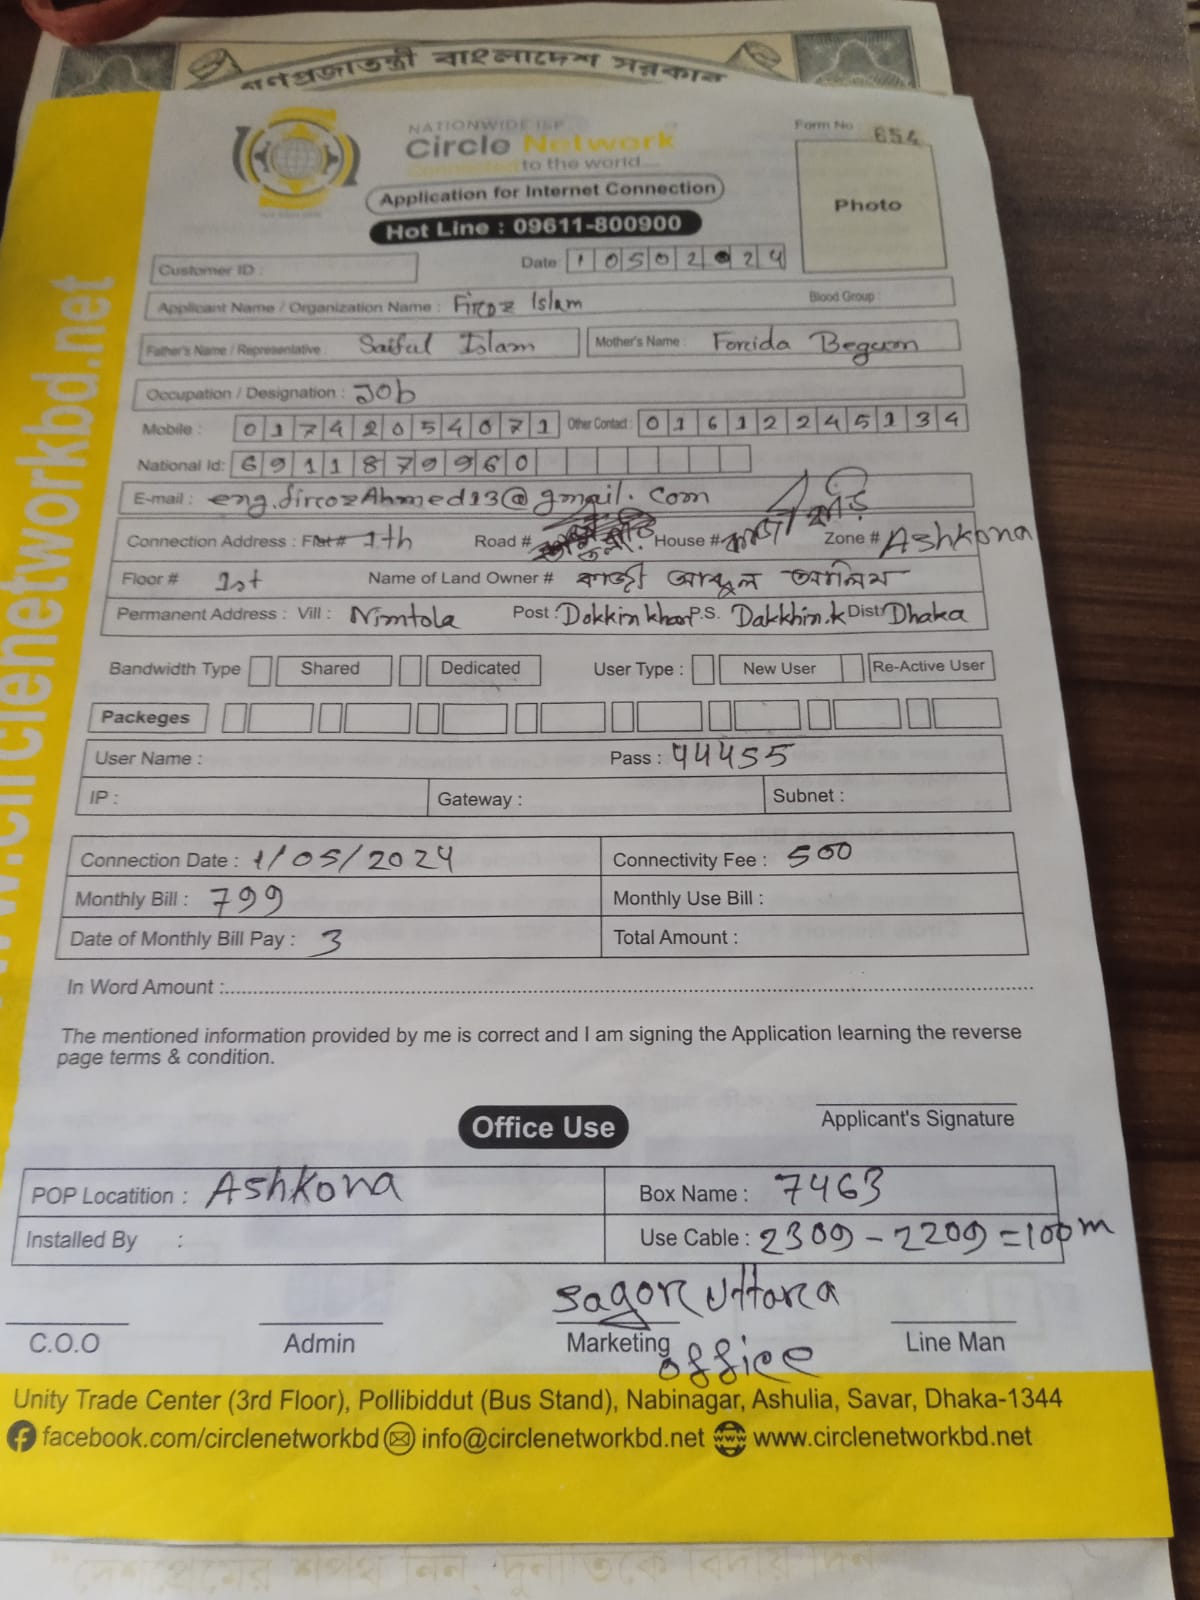 গণপ্রজাতন্ত্রী বাংলাদেশ সরকার
NATIONWIDE ISP
Circle Network
Connected to the world....
Form No 654
Application for Internet Connection
Photo
Hot Line : 09611-800900
Customer ID : Date: 10502024
Applicant Name / Organization Name : Firoz Islam Blood Group :
Father's Name / Representative : Saiful Islam Mother's Name : Forida Begum
Occupation / Designation : Job
Mobile : 01742054071 Other Contact : 01612245134
National Id: 6911879960
E-mail : eng.firozAhmed13@gmail.com
Connection Address : Flat # 1th Road # House # কাজী বাড়ি Zone # Ashkona
Floor # 1st Name of Land Owner # কাজী আব্দুল আলিম
Permanent Address : Vill : Nimtola Post : Dokkin khan P.S. Dakkhin.k Dist: Dhaka
Bandwidth Type Shared Dedicated User Type : New User Re-Active User
Packeges
User Name : Pass : 44455
IP : Gateway : Subnet :
Connection Date : 1/05/2024 Connectivity Fee : 500
Monthly Bill : 799 Monthly Use Bill :
Date of Monthly Bill Pay : 3 Total Amount :
In Word Amount :
The mentioned information provided by me is correct and I am signing the Application learning the reverse
page terms & condition.
Applicant's Signature
Office Use
POP Locatition : Ashkona Box Name : 7463
Installed By : Use Cable : 2309 - 2209 = 100m
Sagor Uttara
C.O.O Admin Marketing Line Man
office
Unity Trade Center (3rd Floor), Pollibiddut (Bus Stand), Nabinagar, Ashulia, Savar, Dhaka-1344
facebook.com/circlenetworkbd info@circlenetworkbd.net www.circlenetworkbd.net
www.circlenetworkbd.net
"দেশপ্রেমের শপথ নিন, দুর্নীতিকে বিদায় দিন"